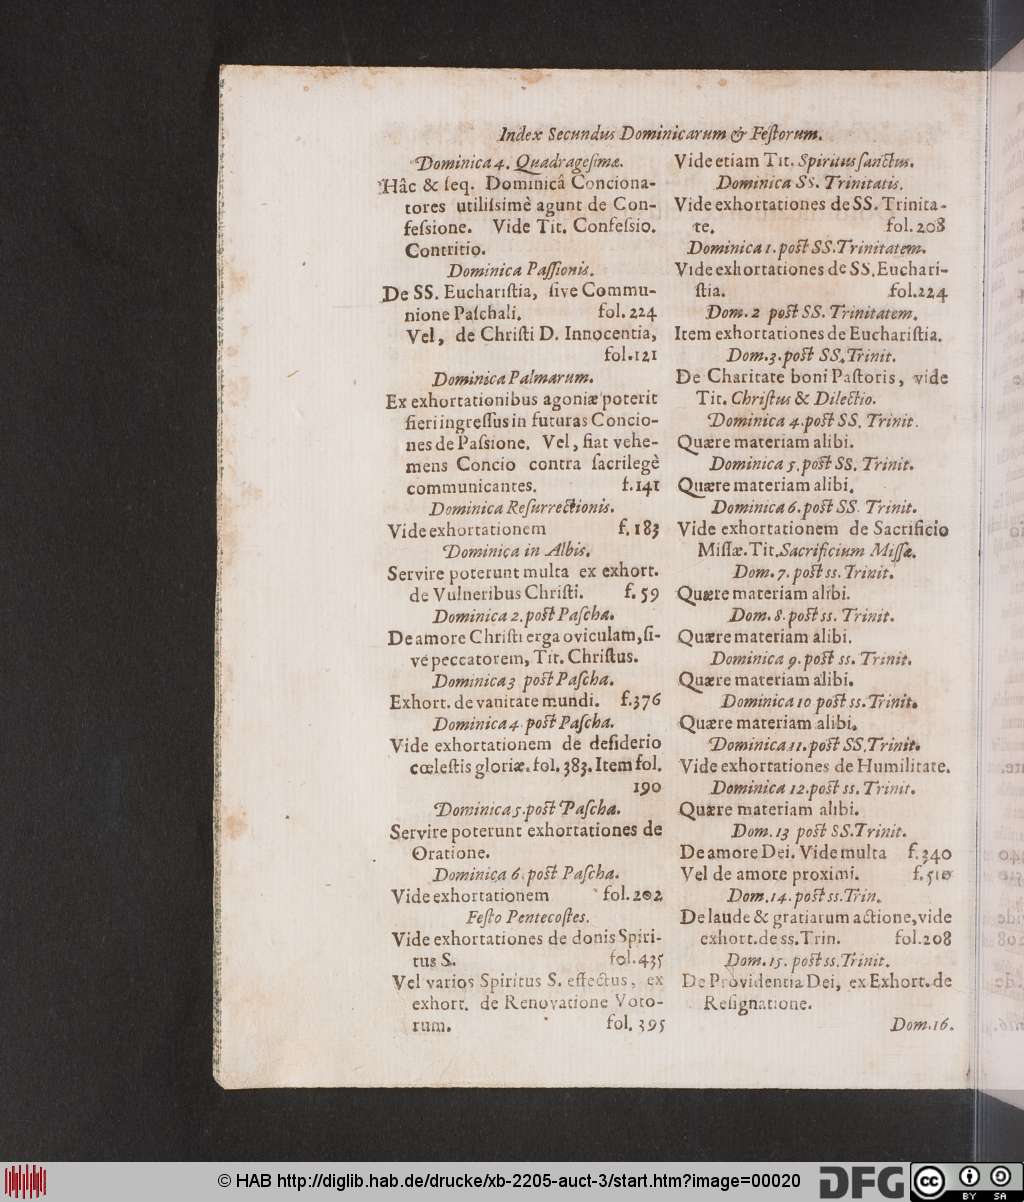 Index Secundus Dominicarum & Feſtorum.
Dominica 4. Quadrageſimæ.
Hâc & ſeq. Dominicâ Conciona-
tores utiliſsimè agunt de Con-
feſsione. Vide Tit. Confeſsio.
Contritio.
Dominica Paſſionis.
De SS. Euchariſtia, ſive Commu-
nione Paſchali. fol. 224
Vel, de Chriſti D. Innocentia,
fol. 121
Dominica Palmarum.
Ex exhortationibus agoniæ poterit
fieri ingreſſus in futuras Concio-
nes de Paſsione. Vel, fiat vehe-
mens Concio contra ſacrilegè
communicantes. f. 141
Dominica Reſurrectionis.
Vide exhortationem f. 183
Dominica in Albis.
Servire poterunt multa ex exhort.
de Vulneribus Chriſti. f. 59
Dominica 2. poſt Paſcha.
De amore Chriſti erga oviculam, ſi-
ve peccatorem, Tit. Chriſtus.
Dominica 3 poſt Paſcha.
Exhort. de vanitate mundi. f. 376
Dominica 4. poſt Paſcha.
Vide exhortationem de deſiderio
cœleſtis gloriæ. fol. 383. Item fol.
190
Dominica 5. poſt Paſcha.
Servire poterunt exhortationes de
Oratione.
Dominica 6. poſt Paſcha.
Vide exhortationem fol. 202
Feſto Pentecoſtes.
Vide exhortationes de donis Spiri-
tus S. fol. 435
Vel varios Spiritus S. effectus, ex
exhort. de Renovatione Voto-
rum. fol. 395
Vide etiam Tit. Spiritus ſanctus.
Dominica SS. Trinitatis.
Vide exhortationes de SS. Trinita-
te. fol. 208
Dominica 1. poſt SS. Trinitatem.
Vide exhortationes de SS. Euchari-
ſtia. fol. 224
Dom. 2 poſt SS. Trinitatem.
Item exhortationes de Euchariſtia.
Dom. 3. poſt SS. Trinit.
De Charitate boni Paſtoris, vide
Tit. Chriſtus & Dilectio.
Dominica 4. poſt SS. Trinit.
Quære materiam alibi.
Dominica 5. poſt SS. Trinit.
Quære materiam alibi.
Dominica 6. poſt SS. Trinit.
Vide exhortationem de Sacrificio
Miſſæ. Tit. Sacrificium Miſſæ.
Dom. 7. poſt ss. Trinit.
Quære materiam alibi.
Dom. 8. poſt ss. Trinit.
Quære materiam alibi.
Dominica 9. poſt ss. Trinit.
Quære materiam alibi.
Dominica 10 poſt ss. Trinit.
Quære materiam alibi.
Dominica 11. poſt SS. Trinit.
Vide exhortationes de Humilitate.
Dominica 12. poſt ss. Trinit.
Quære materiam alibi.
Dom. 13 poſt SS. Trinit.
De amore Dei. Vide multa f. 340
Vel de amore proximi. f. 510
Dom. 14. poſt ss. Trin.
De laude & gratiarum actione, vide
exhort. de ss. Trin. fol. 208
Dom. 15. poſt ss. Trinit.
De Providentia Dei, ex Exhort. de
Reſignatione.
Dom. 16.
© HAB http://diglib.hab.de/drucke/xb-2205-auct-3/start.htm?image=00020
DFG
cc
BY SA